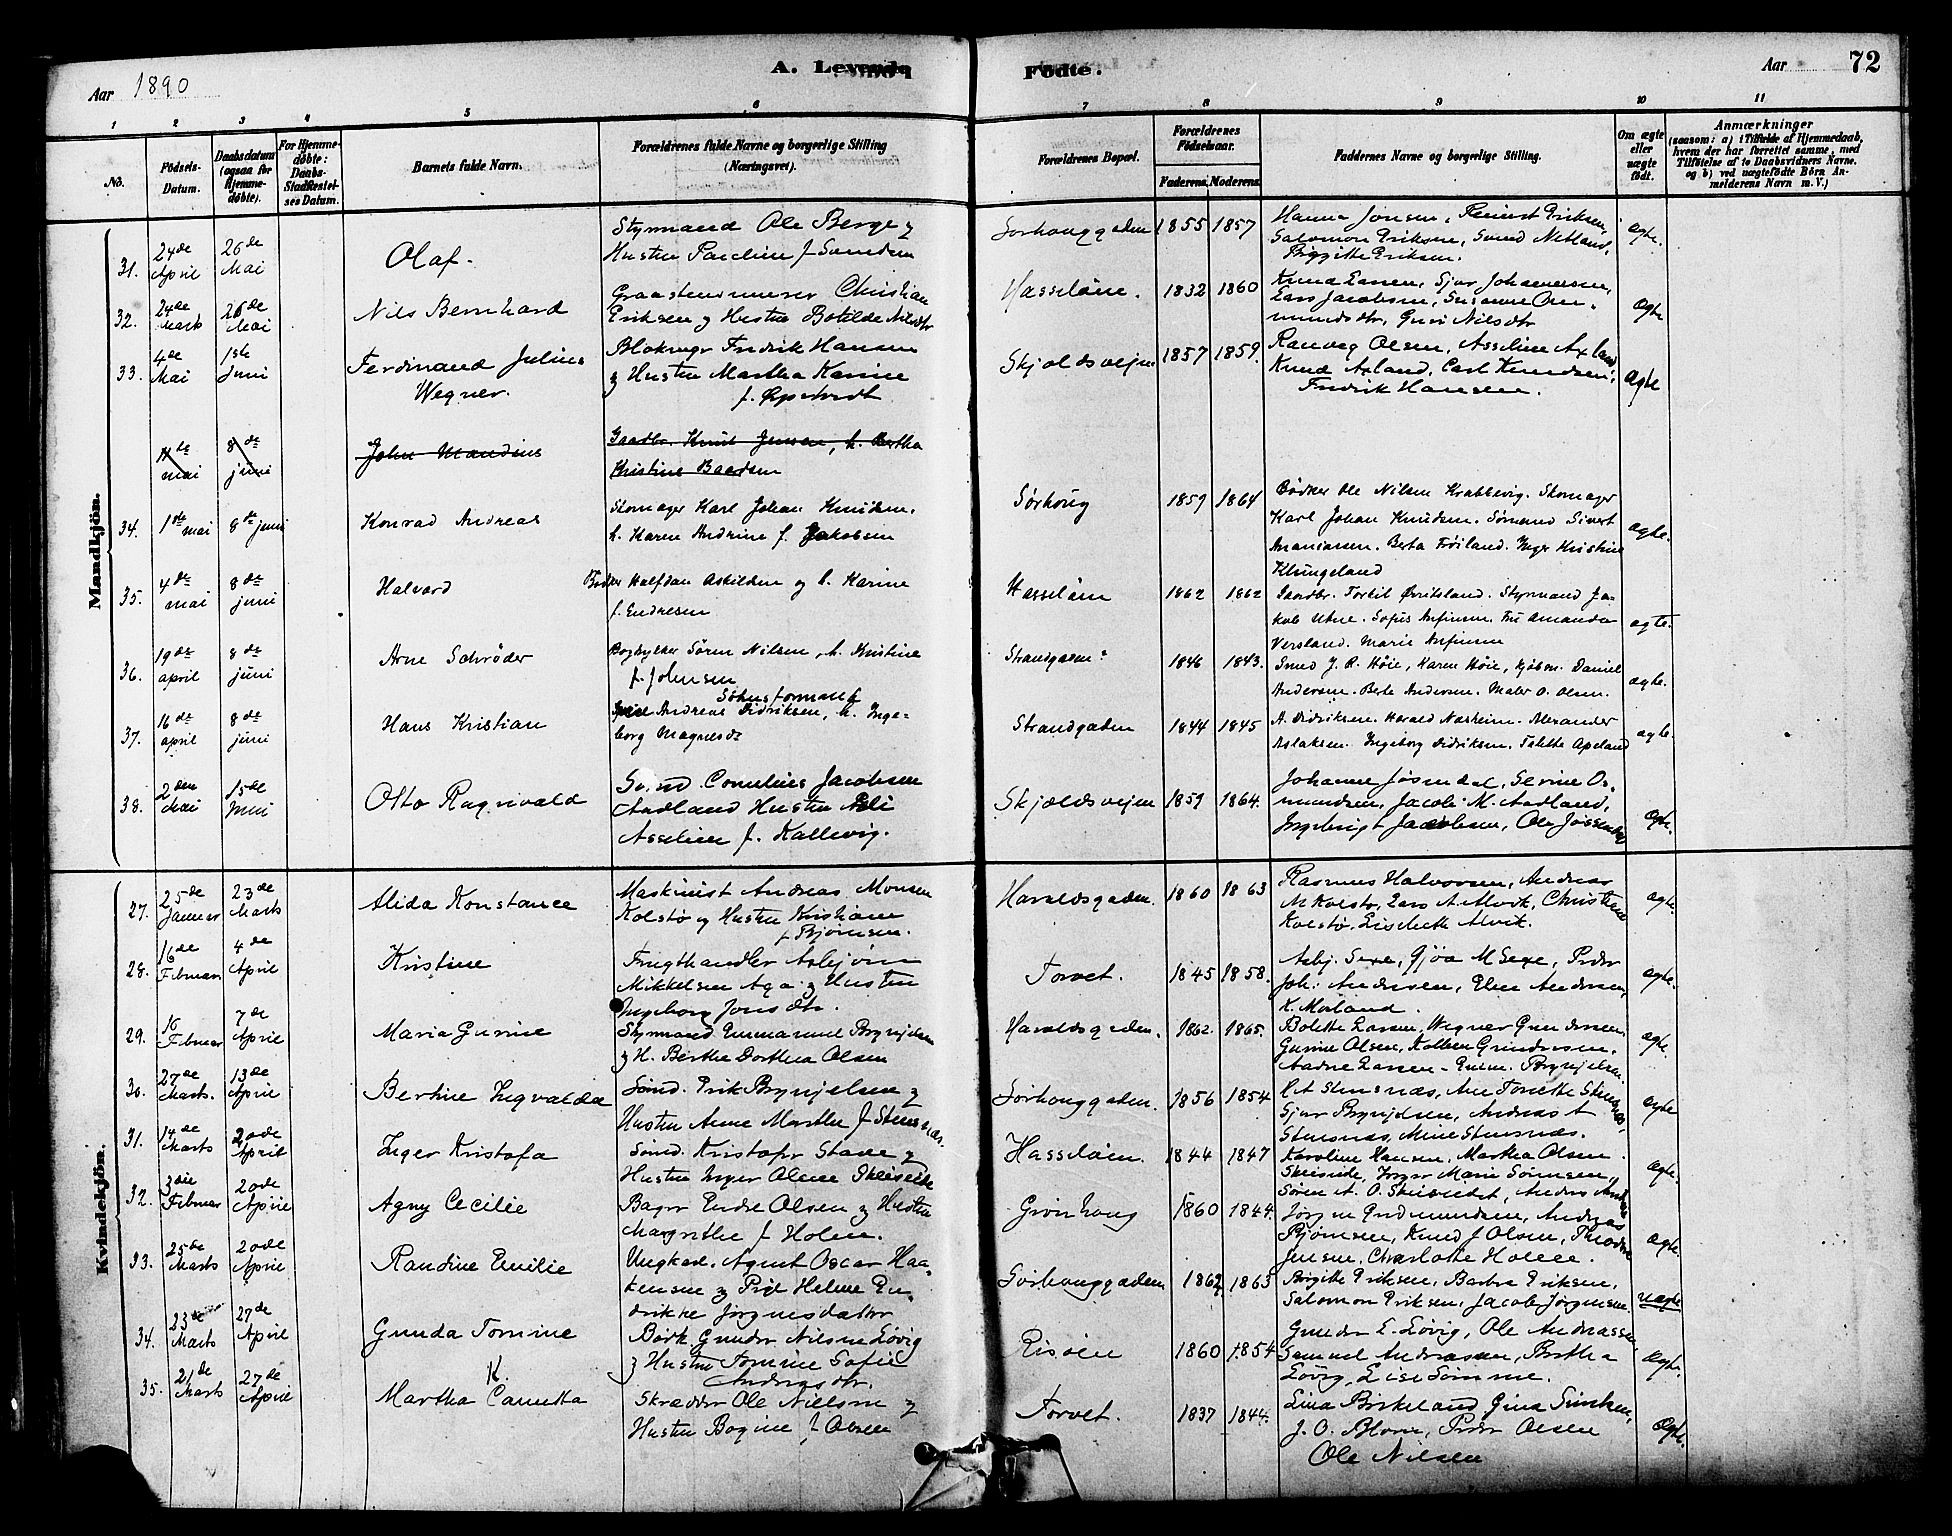 Aar 1890
A. Levende Fødte.
Aar 72
1 2 3 4 5 6 7 8 9 10 11
No.
Fødsels-Datum.
Daabsdatum (ogsaa for Hjemmedøbte).
For Hjemmedøbte: Daabs-Stadfæstelses Datum.
Barnets fulde Navn.
Forældrenes fulde Navne og borgerlige Stilling (Næringsvei).
Forældrenes Bopæl.
Forældrenes Fødselsaar.
Faderens. Moderens.
Faddernes Navne og borgerlige Stilling.
Om ægte eller uægte født.
Anmærkninger
(saasom: a) i Tilfælde af Hjemmedaab, hvem der har forrettet samme, med Tilføielse af to Daabsvidners Navne, og b) ved uægtefødte Børn Anmelderens Navn m. V.)
Mandkjøn.
31. 24de April 26de Mai Olaf. Styrmand Ole Berge og Hustru Pauline f. Sørhouggaden 1855 1857 Hanna Jonsen, Eriksen, Salomon Eriksen, Svend Netland, Birgitte Eriksen. ægte.
32. 24de Marts 26de Mai Nils Bernhard Graastensmurer Christian Eriksen og Hustru Botilde Nilsdtr Hasseløen. 1832 1860 Knud Larsen, Sjur Johannessen, Lars Jacobsen, Susanne Guri Nilsdtr ægte
33. 4de Mai 1ste Juni Ferdinand Julius Wegner. Blokmgr Fredrik Hansen og Hustru Martha Karine f. Skjoldsvejen 1857 1859. Olsen, Asseline Axland, Knud Axland, Carl Knudsen, Fredrik Hansen. ægte
11te mai 8de juni John Mandius Gaardbr. Knut Jensen, h. Bertha Kristine Baardsen
34. 1ste mai 8de juni Konrad Andreas Skomager Karl Johan Knudsen. h. Karen Andrine f. Jakobsen Sørhoug 1859 1864 Bødker Ole Nilsen Krabbevig. Skomager Karl Johan Knudsen. Sømand Sivert Ananiassen. Berta Frøiland. Inger Kristine Klungeland ægte.
35. 4de mai 8de juni Halvard Bødker Halfdan Askildsen og h. Karine f. Endresen Hasseløen 1862 1862 Gaardbr. Torkil Styrmand Jakob Utne. Sofus Anfinsen. Fru Amanda Versland. Marie Anfinsen ægte.
36. 19de april 8de juni Arne Schrøder Boghylker Søren Nilsen, h. Kristine f. Johnsen Strandgaden 1846 1843. Smed J. R. Høie, Karen Høie, Kjøbm. Daniel Andersen. Berte Andersen. Maler O. Olsen. ægte.
37. 16de april 8de juni Hans Kristian Andreas Didriksen, h. Ingeborg Magnesdr Strandgaden 1844 1845 A. Didriksen. Harald Næsheim. Alexander Aslaksen. Ingeborg Didriksen. Tolette Apeland ægte.
38. 2den Mai 15de Juni Otto Ragnvald Sømd Cornelius Jacobsen Aadland Hustru Asseline f. Kallevig. Skjoldsvejen 1859 1864. Johanne Jøsendal, Serine Osmundsen, Jacob M. Aadland, Ingebrigt Jacobsen, Ole ægte.
Kvindekjøn.
27. 25de Januar 23de Marts Alida Konstance Maskinist Andreas Monsen Kolstø og Hustru Kristiane f. Bjørnsen. Haraldsgaden. 1860 1863 Rasmus Halvorsen, Andreas M Kolstø, Lars A. Alvik, Christine Kolstø, Lisebeth Alvik. ægte.
28. 16de Februar 4de April Kristine Frugthandler Asbjørn Mikkelsen Aga og Hustru Ingeborg Jonsdtr. Torvet. 1845 1858. Asbj. Sexe, Gjøa M Sexe, Peder Joh: Andersen, Elen Andersen, K. Morland. ægte.
29. 16 Februar 7de April Maria Gurine Styrmand Emmanuel Brynjelsen og H. Berthe Dorthea Olsen Haraldsgaden. 1862. 1865. Bolette Larsen, Wegner Gundersen, Gurine Olsen, Kolben Gundersen. Larsen - Emm. Brynjelsen. ægte.
30. 27de Marts. 13de April Bertine Ingvalda Sømd. Erik Brynjelsen og Hustru Anne Marthe f. Stensnæs. Sørhouggaden. 1856 1854 Stensnæs, Ane Tonette Stensnæs, Sjur Brynjelsen, Andreas A Stensnæs, Mine Stensnæs. ægte
31. 14de Marts 20de April Inger Kristofa Sømd. Kristofer Stave og Hustru Inger Olene Hasseløen. 1844 1847 Karoline Hansen, Martha Olsen. Inger Marie Sørensen, Søren A. O. ægte.
32. 3die Februar 20de April Agny Cecilie Bager Endre Olsen og Hustru Margrethe f. Holm. Grønhoug 1860 1844. Jørgen Gudmundsen, Andreas Bjørnsen, Knud J Olsen, Theodor Jensen, Charlotte Holm. ægte.
33. 25de Marts 20de April Randine Emilie Ungkarl. Agent Oscar Haakensen og Pige Helene Endrikke Jørgensdatter Sørhouggaden 1862 1863 Birgitte Eriksen, Barbra Eriksen, Salomon Eriksen, Jacob Jørgensen uægte
34. 23de Marts 27de April Gunda Tomine Gunder Nilsen Løvig og Hustru Tomine Sofie Andreasdtr. Risøen 1860 1854 Gunder E. Løvig, Ole Andreassen, Samuel Andreasen, Bertha Løvig, Lise Sømme. ægte.
35. 21de Marts 27de April Martha K. Camitta Skrædder Ole Nielsen og Hustru Bogine f. Olsen Torvet. 1837 1844. Lina Birkeland, Gina Simonsen, J. O. Blom, Peder Olsen Ole Nilsen ægte.